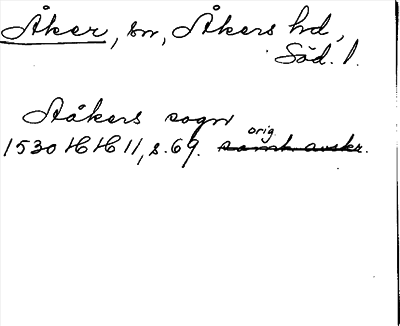 Åker, sn, Åkers hd,
Söd. l.
Aåkers sogn
orig.
1530 HH 11, s. 69. samt avskr.